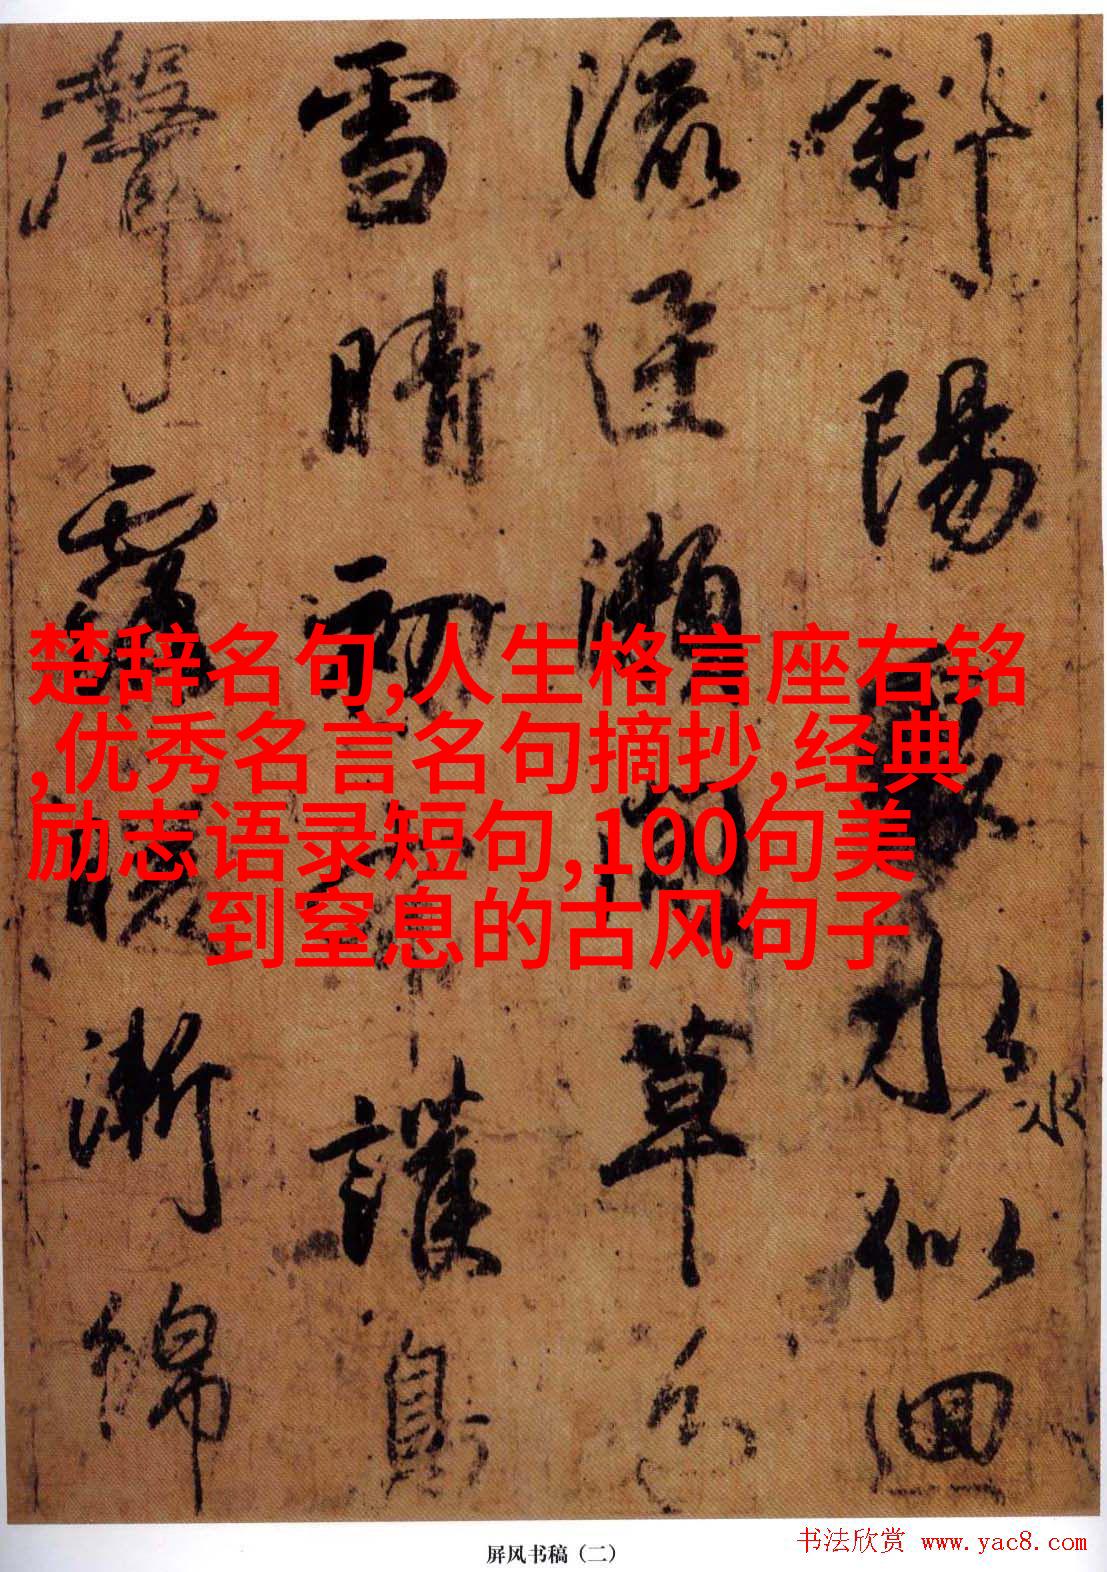 斜陽水似洄
瀬草色
雪晴初護鳥
聲露漸綿
楚辞名句,人生格言座右铭
,优秀名言名句摘抄,经典
励志语录短句,100句美
到窒息的古风句子
屏风书稿（二）
书法欣赏 www.yac8.com